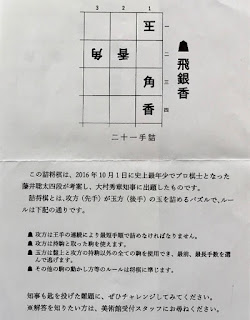 3 2 1
王 一
角 香 二
角 三
香 四
飛銀香
二十一手詰
この詰将棋は、2016年10月1日に史上最年少でプロ棋士となった
藤井聡太四段が考案し、大村秀章知事に出題したものです。
詰将棋とは、攻方（先手）が玉方（後手）の玉を詰めるパズルで、ルー
ルは下記の通りです。
攻方は王手の連続により最短手順で詰めなければなりません。
攻方は持駒と取った駒を使えます。
玉方は盤上と攻方の持駒以外の全ての駒を使用でき、最前、最長手数を選
んで逃げます。
その他の駒の動かし方等のルールは将棋に準じます。
知事も匙を投げた難題に、ぜひチャレンジしてみてください。
※解答を知りたい方は、美術館受付スタッフにお尋ねください。